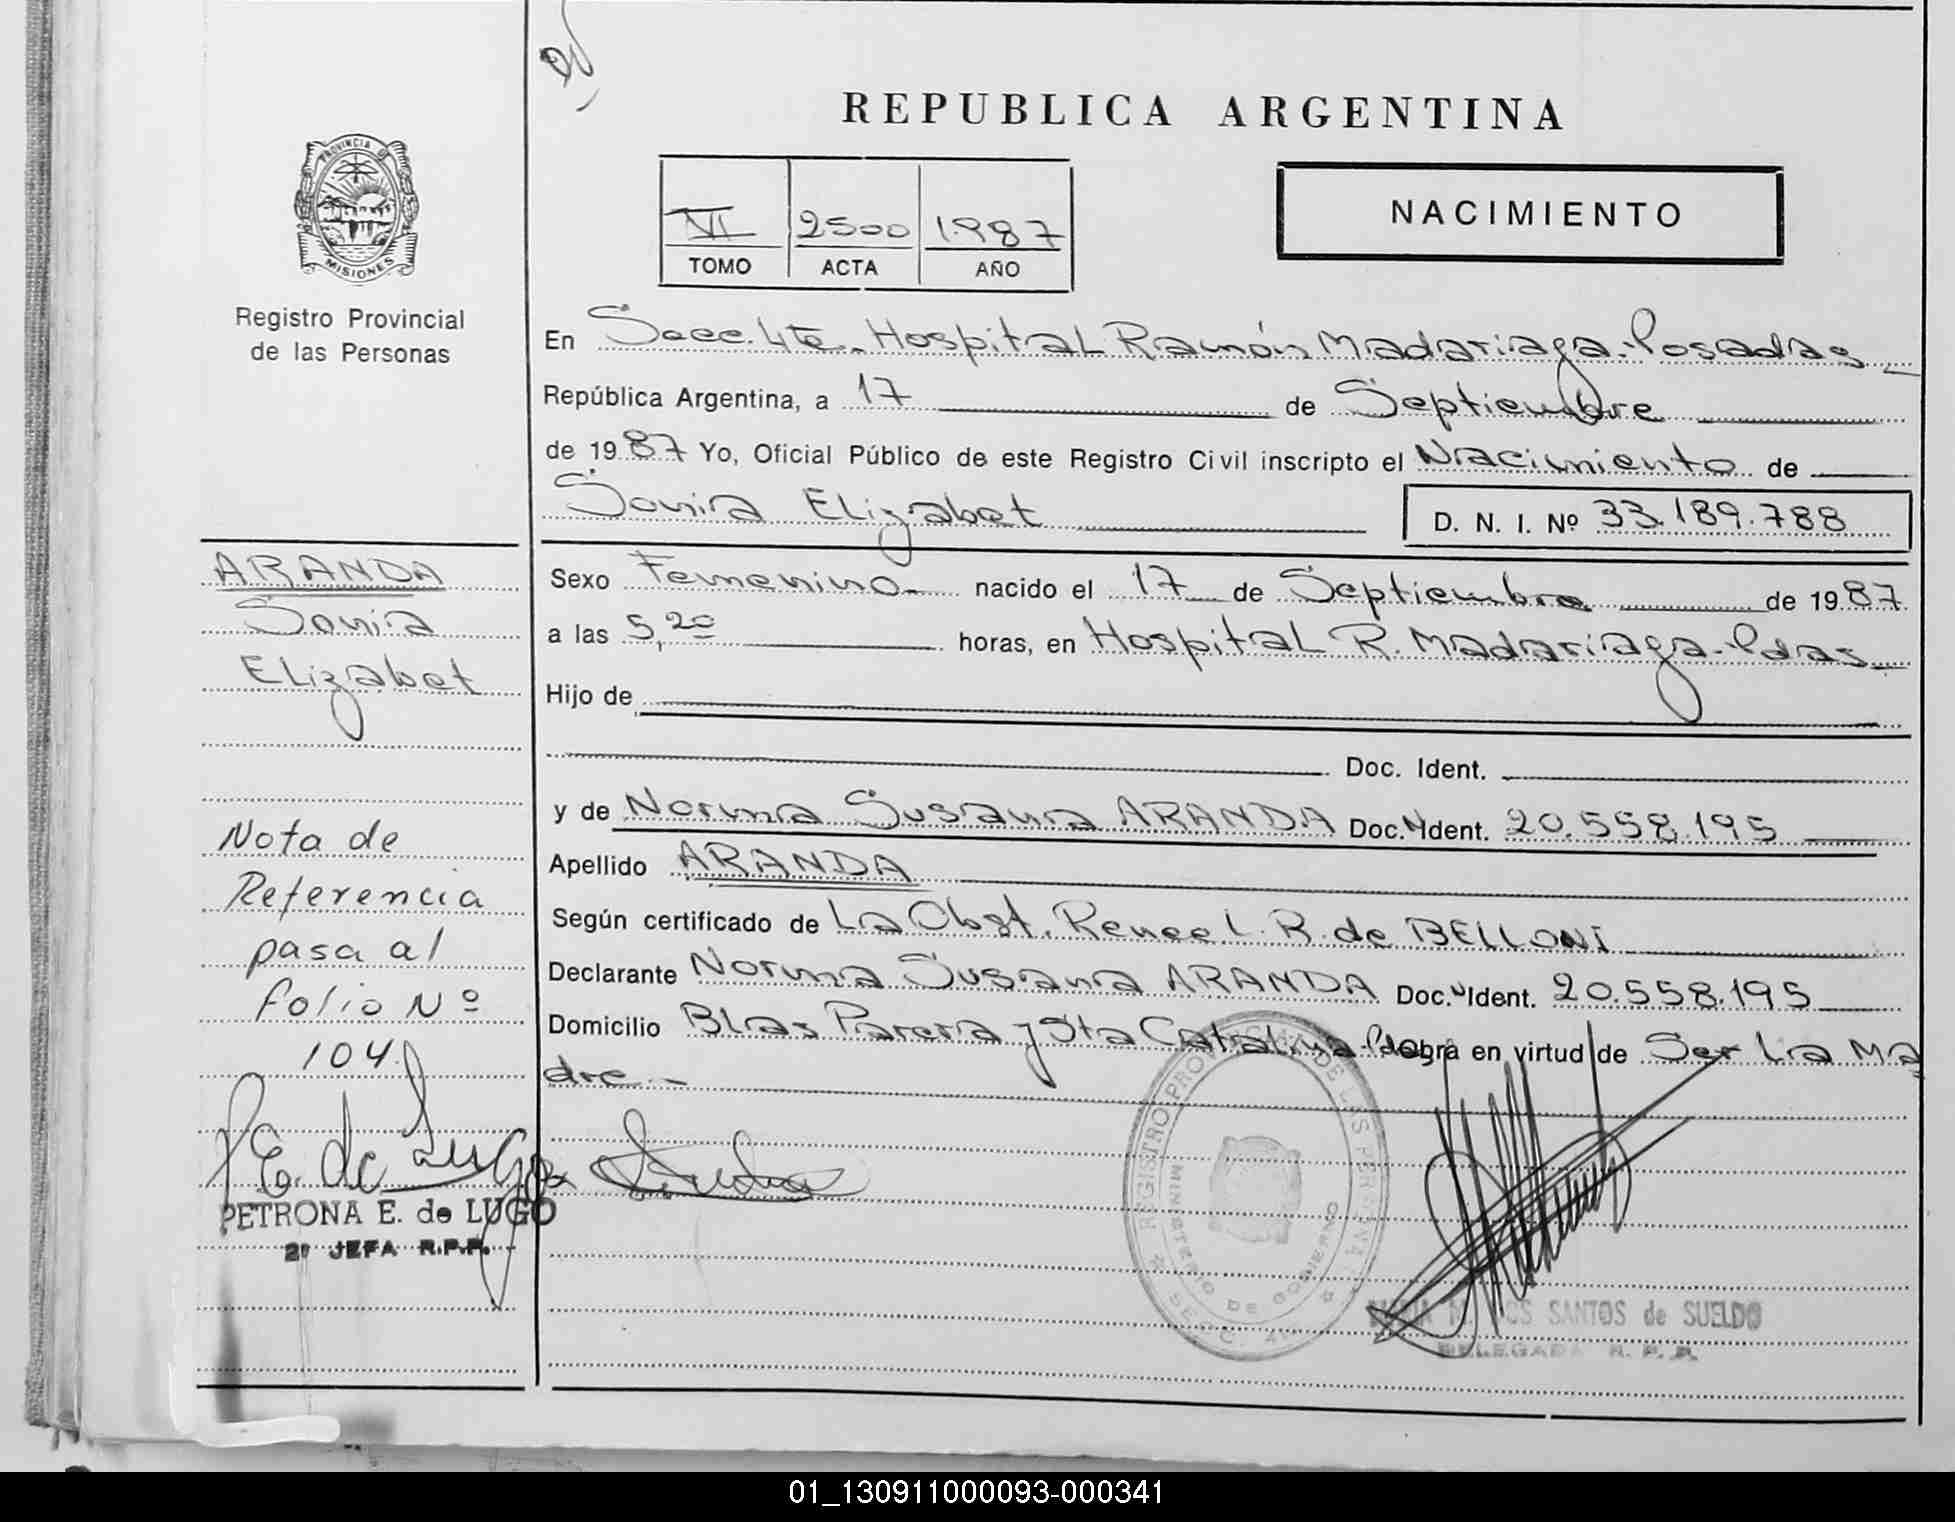 REPUBLICA ARGENTINA
VI 2500 1987
TOMO ACTA AÑO
NACIMIENTO
PROVINCIA DE
MISIONES
Registro Provincial
de las Personas
En Secc. 4ta. Hospital Ramón Madariaga - Posadas
República Argentina, a 17 de Septiembre
de 1987 Yo, Oficial Público de este Registro Civil inscripto el Nacimiento de
Sonia Elizabet D. N. I. Nº 33.189.788
Sexo Femenino nacido el 17 de Septiembre de 1987
a las 5,20 horas, en Hospital R. Madariaga - Pdas
Hijo de
Doc. Ident.
y de Norma Susana ARANDA Doc. Ident. 20.558.195
Apellido ARANDA
Según certificado de La Obst. Renee L. R. de BELLONI
Declarante Norma Susana ARANDA Doc. Ident. 20.558.195
Domicilio Blas Parera y Sta Catalina - Pdas obra en virtud de Ser La Ma
dre -
ARANDA
Sonia
Elizabet
Nota de
Referencia
pasa al
folio Nº
104
P. E. de Lugo
PETRONA E. de LUGO
2º JEFA R.P.P.
REGISTRO PROVINCIAL DE LAS PERSONAS
MINISTERIO DE GOBIERNO
SECC. 4ta
SANTOS de SUELDO
DELEGADA R. P. P.
01_130911000093-000341